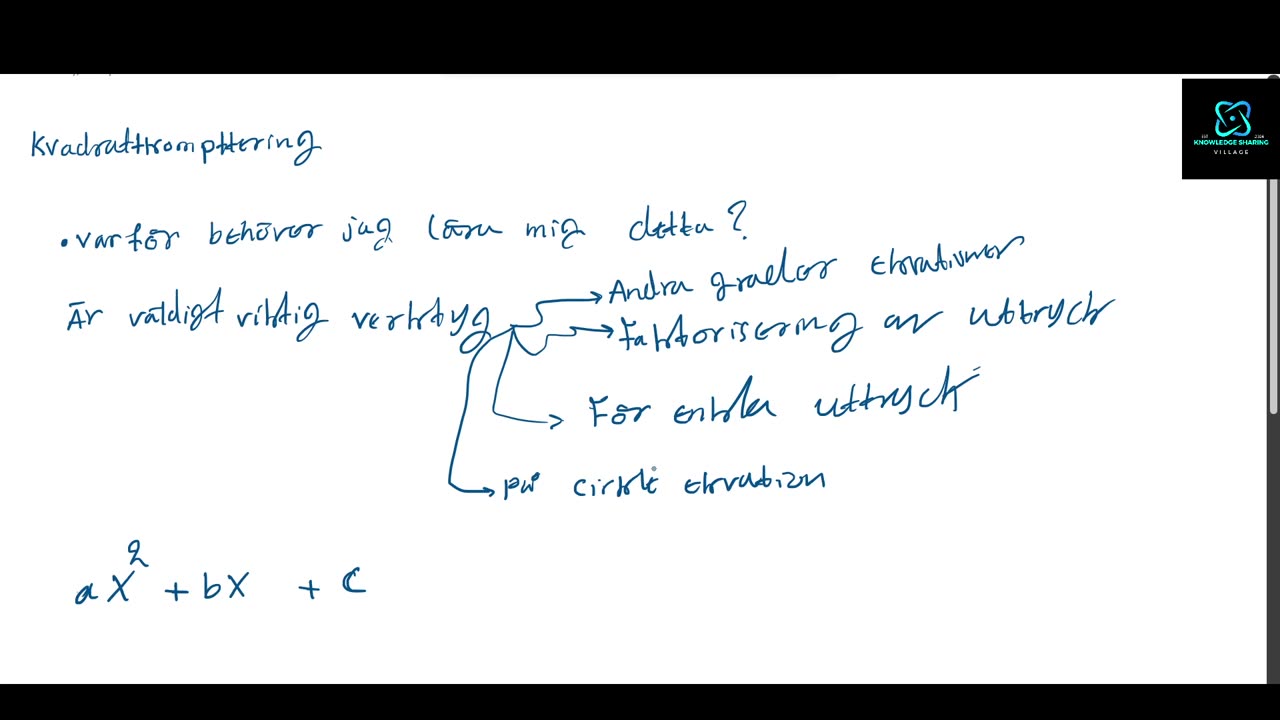 Kvadratkomplettering
KNOWLEDGE SHARING
VILLAGE
• varför behöver jag lära mig detta?
Är väldigt viktig verktyg
Andra grader ekvationer
Faktorisering av uttryck
För enkla uttryck
på cirkel ekvation
ax² + bx + c